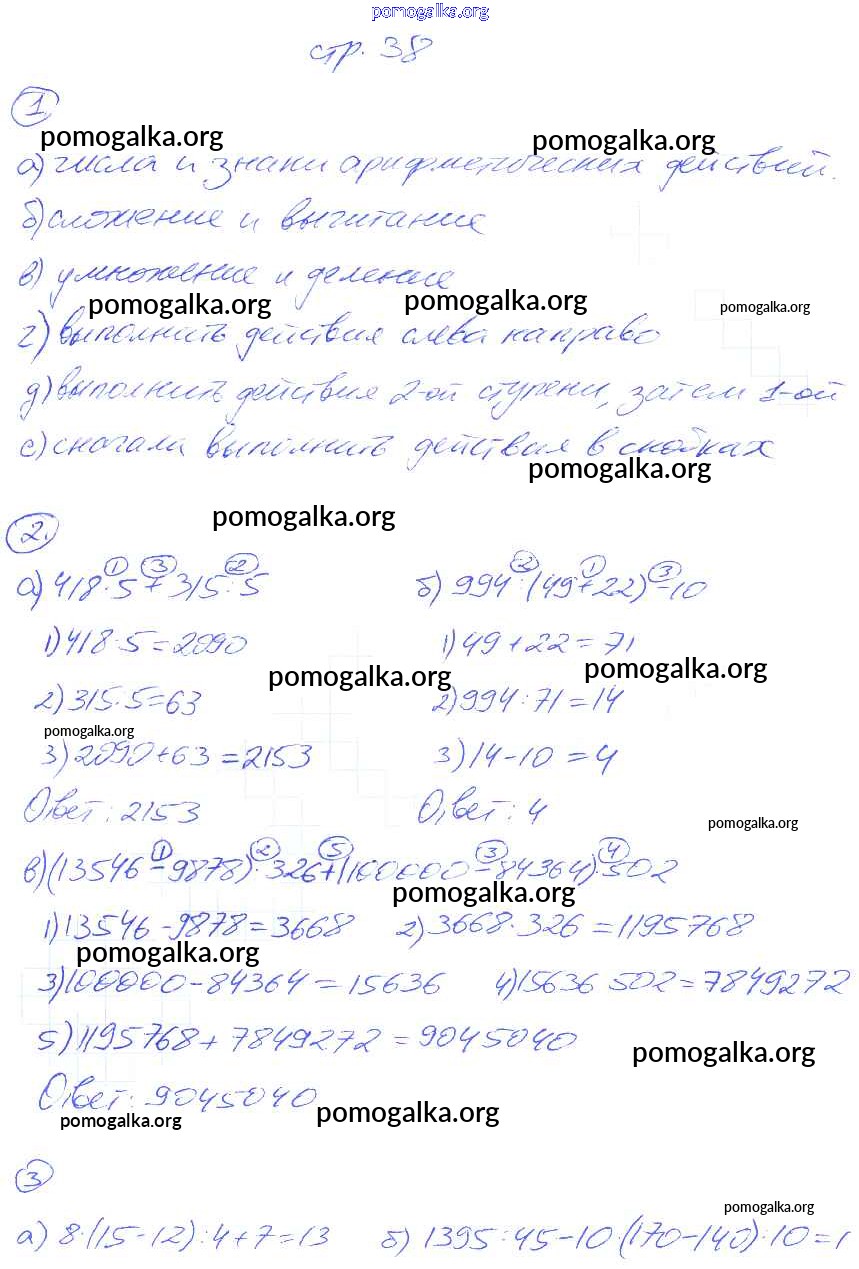 pomogalka.org
стр. 38
1
pomogalka.org pomogalka.org
а) числа и знаки арифметических действий.
б) сложение и вычитание
в) умножение и деление
pomogalka.org pomogalka.org pomogalka.org
г) выполнить действия слева направо
д) выполнить действия 2-ой ступени, затем 1-ой
е) сначала выполнить действия в скобках
pomogalka.org
pomogalka.org
2.
1 3 2 2 1 3
а) 418·5+315:5 б) 994:(49+22)-10
1) 418·5=2090 1) 49+22=71
pomogalka.org pomogalka.org
2) 315·5=63 2) 994:71=14
pomogalka.org
3) 2090+63=2153 3) 14-10=4
Ответ: 2153 Ответ: 4
pomogalka.org
1 2 5 3 4
в) (13546-9878)·326+(100000-84364)·502
pomogalka.org
1) 13546-9878=3668 2) 3668·326=1195768
pomogalka.org
3) 100000-84364=15636 4) 15636 502=7849272
5) 1195768+7849272=9045040
pomogalka.org
Ответ: 9045040
pomogalka.org pomogalka.org
3
pomogalka.org
а) 8·(15-12):4+7=13 б) 1395:45-10·(170-140):10=1